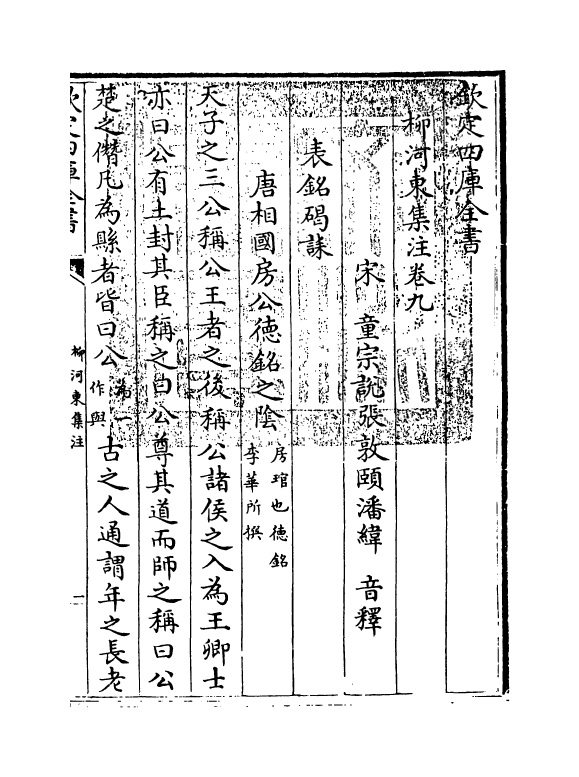 欽定四庫全書
柳河東集注卷九
宋 童宗説張敦頤潘緯 音釋
表銘碣誄
唐相國房公徳銘之陰
房琯也徳銘
李華所撰
天子之三公稱公王者之後稱公諸侯之入為王卿士
亦曰公有土封其臣稱之曰公尊其道而師之稱曰公
楚之僭凡為縣者皆曰公
為一
作與
古之人通謂年之長老
欽定四庫全書
柳河東集注
一